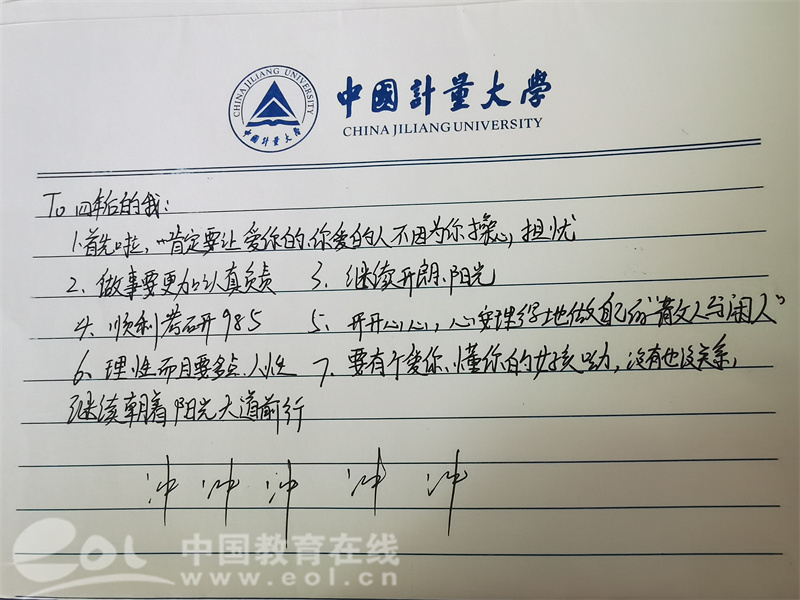 CHINA JILIANG UNIVERSITY
中國計量大學
中國計量大學
CHINA JILIANG UNIVERSITY
To 四年后的我:
1.首先啦,肯定要让爱你的、你爱的人不因为你操心,担忧
2、做事要更加认真负责 3、继续开朗、阳光
4、顺利考研985 5、开开心心,心安理得地做自己的"散文人与闲人"
6、理性而且要多点人性 7、要有个爱你、懂你的女孩呦,没有也没关系,
继续朝着阳光大道前行
冲 冲 冲 冲 冲
eol 中国教育在线
www.eol.cn